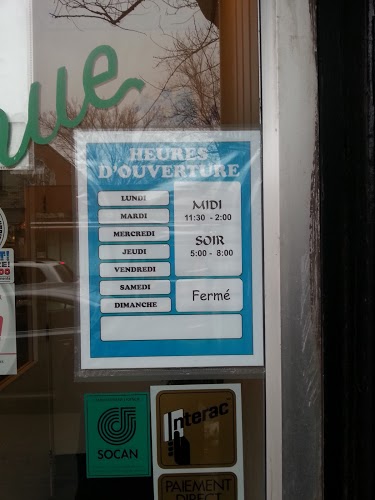 nue
HEURES
D'OUVERTURE
LUNDI
MARDI
MERCREDI
JEUDI
VENDREDI
SAMEDI
DIMANCHE
MIDI
11:30 - 2:00
SOIR
5:00 - 8:00
Fermé
SOCAN
Interac
PAIEMENT
DIRECT